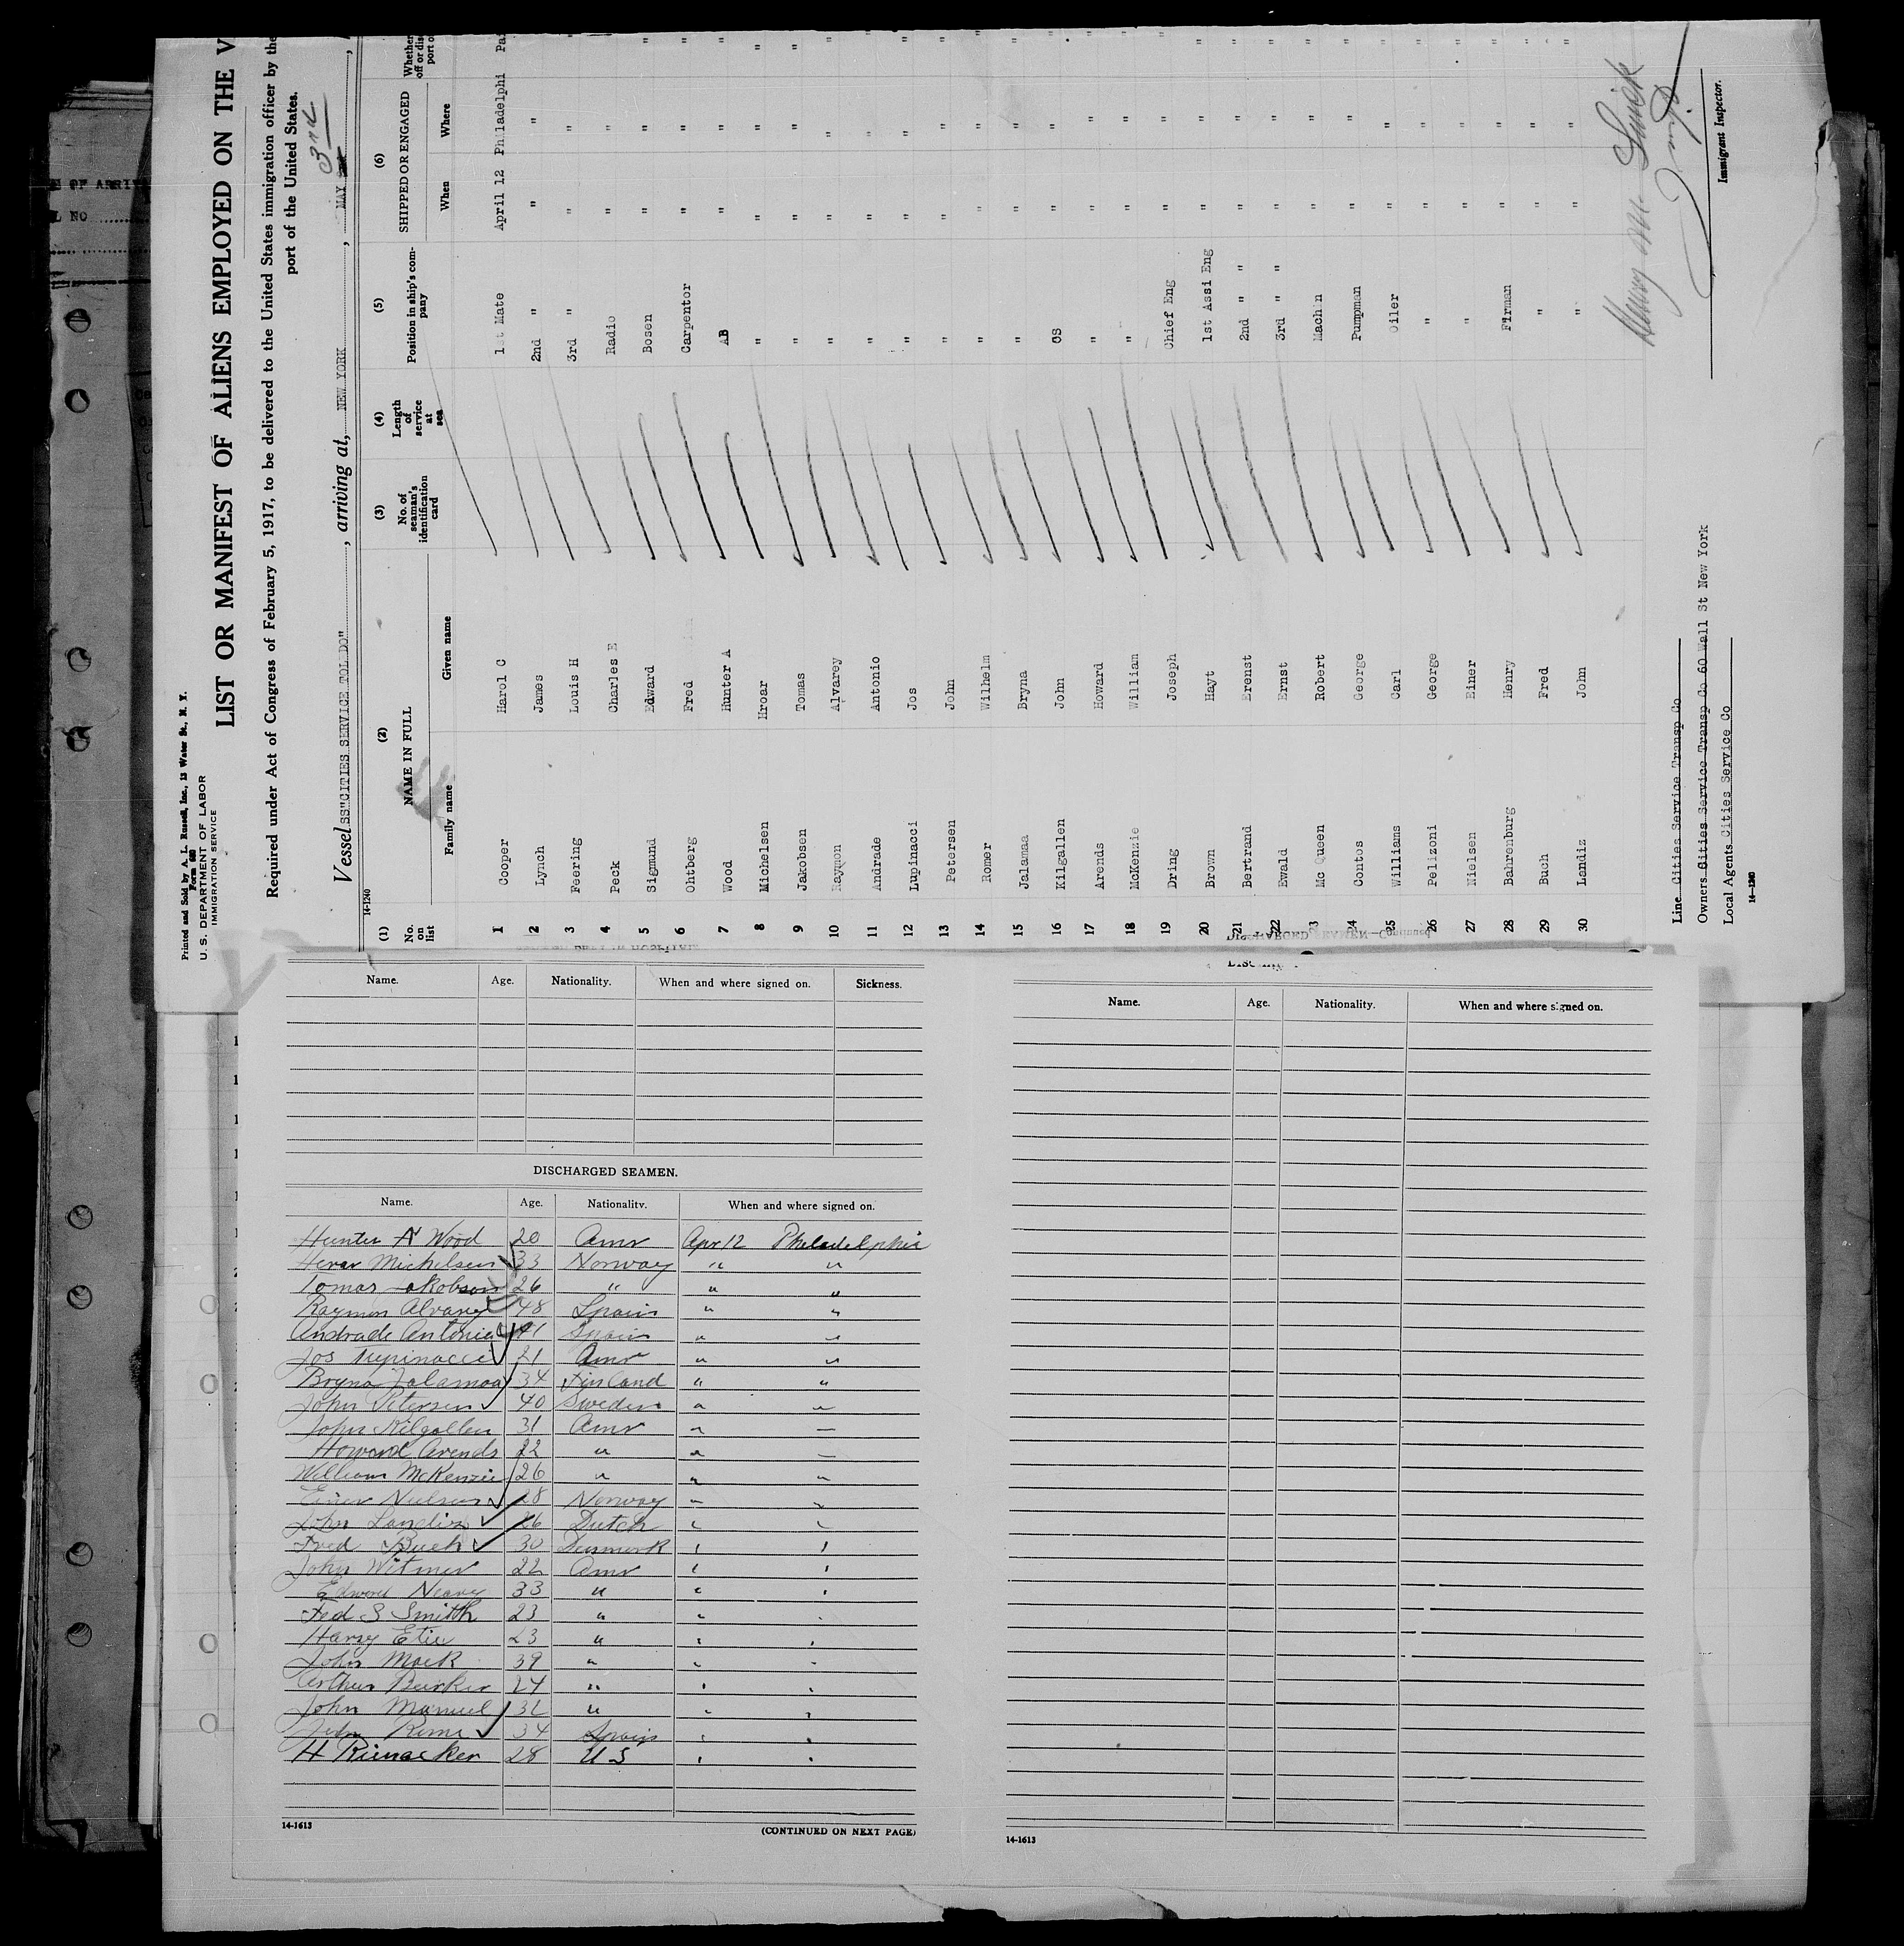 Printed and Sold by A. L. Russell, Inc., 13 Water St., N. Y.
Form 680
U. S. DEPARTMENT OF LABOR
IMMIGRATION SERVICE
LIST OR MANIFEST OF ALIENS EMPLOYED ON THE V
Required under Act of Congress of February 5, 1917, to be delivered to the United States immigration officer by the
port of the United States.
3rd
Vessel SS"CITIES SERVICE TOL DO", arriving at, NEW YORK, MAY
14-1240
(1) (2) (3) (4) (5) (6)
No. on list NAME IN FULL No. of seaman's identification card Length of service at sea Position in ship's company SHIPPED OR ENGAGED Whether
Family name Given name When Where
1 Cooper Harol C 1st Mate April 12 Philadelphi Pa
2 Lynch James 2nd " " " "
3 Feering Louis H 3rd " " " "
4 Peck Charles E Radio " " "
5 Sigmund Edward Bosen " " "
6 Ohtberg Fred Carpentor " " "
7 Wood Hunter A AB " " "
8 Michelsen Hroar " " " "
9 Jakobsen Tomas " " " "
10 Raymon Alvarey " " " "
11 Andrade Antonio " " " "
12 Lupinacci Jos " " " "
13 Petersen John " " " "
14 Romer Wilhelm " " " "
15 Jalamaa Bryna " " " "
16 Kilgallen John OS " " "
17 Arends Howard " " " "
18 McKenzie William " " " "
19 Dring Joseph Chief Eng " " "
20 Brown Hayt 1st Assi Eng " " "
21 Bertrand Erenst 2nd " " " " "
22 Ewald Ernst 3rd " " " " "
23 Mc Queen Robert Machin " " "
24 Contos George Pumpman " " "
25 Williams Carl Oiler " " "
26 Pelizoni George " " " "
27 Nielsen Einer " " " "
28 Bahrenburg Henry Firman " " "
29 Buch Fred " " " "
30 Landiz John " " " "
Line Cities Service Transp Co
Owners Cities Service Transp Co 60 Wall St New York
Local Agents Cities Service Co
14-1240
Immigrant Inspector.
DISCHARGED SEAMEN—Continued
Name. Age. Nationality. When and where signed on. Sickness.
Name. Age. Nationality. When and where signed on.
DISCHARGED SEAMEN.
Name. Age. Nationality. When and where signed on.
Hunter A Wood 20 Amr Apr 12 Philadelphia
Hroar Michelsen 33 Norway " "
Tomas Jakobson 26 " " "
Raymon Alvarey 48 Spain " "
Andrade Antonio 41 Spain " "
Jos Lupinacci 21 Amr " "
Bryna Jalamaa 34 Finland " "
John Petersen 40 Sweden " "
John Kilgallen 31 Amr " "
Howard Arends 22 " " "
William McKenzie 26 " " "
Einer Nielsen 28 Norway " "
John Landiz 26 Dutch " "
Fred Buch 30 Denmark " "
John Witmer 22 Amr " "
Edword Neavy 33 " " "
Fed S Smith 23 " " "
Harry Etie 23 " " "
John Mack 39 " " "
Arthur Burker 24 " " "
John Manuel 32 " " "
John Rima 34 Spain " "
H Rienacker 28 U S " "
14-1613
(CONTINUED ON NEXT PAGE)
14-1613